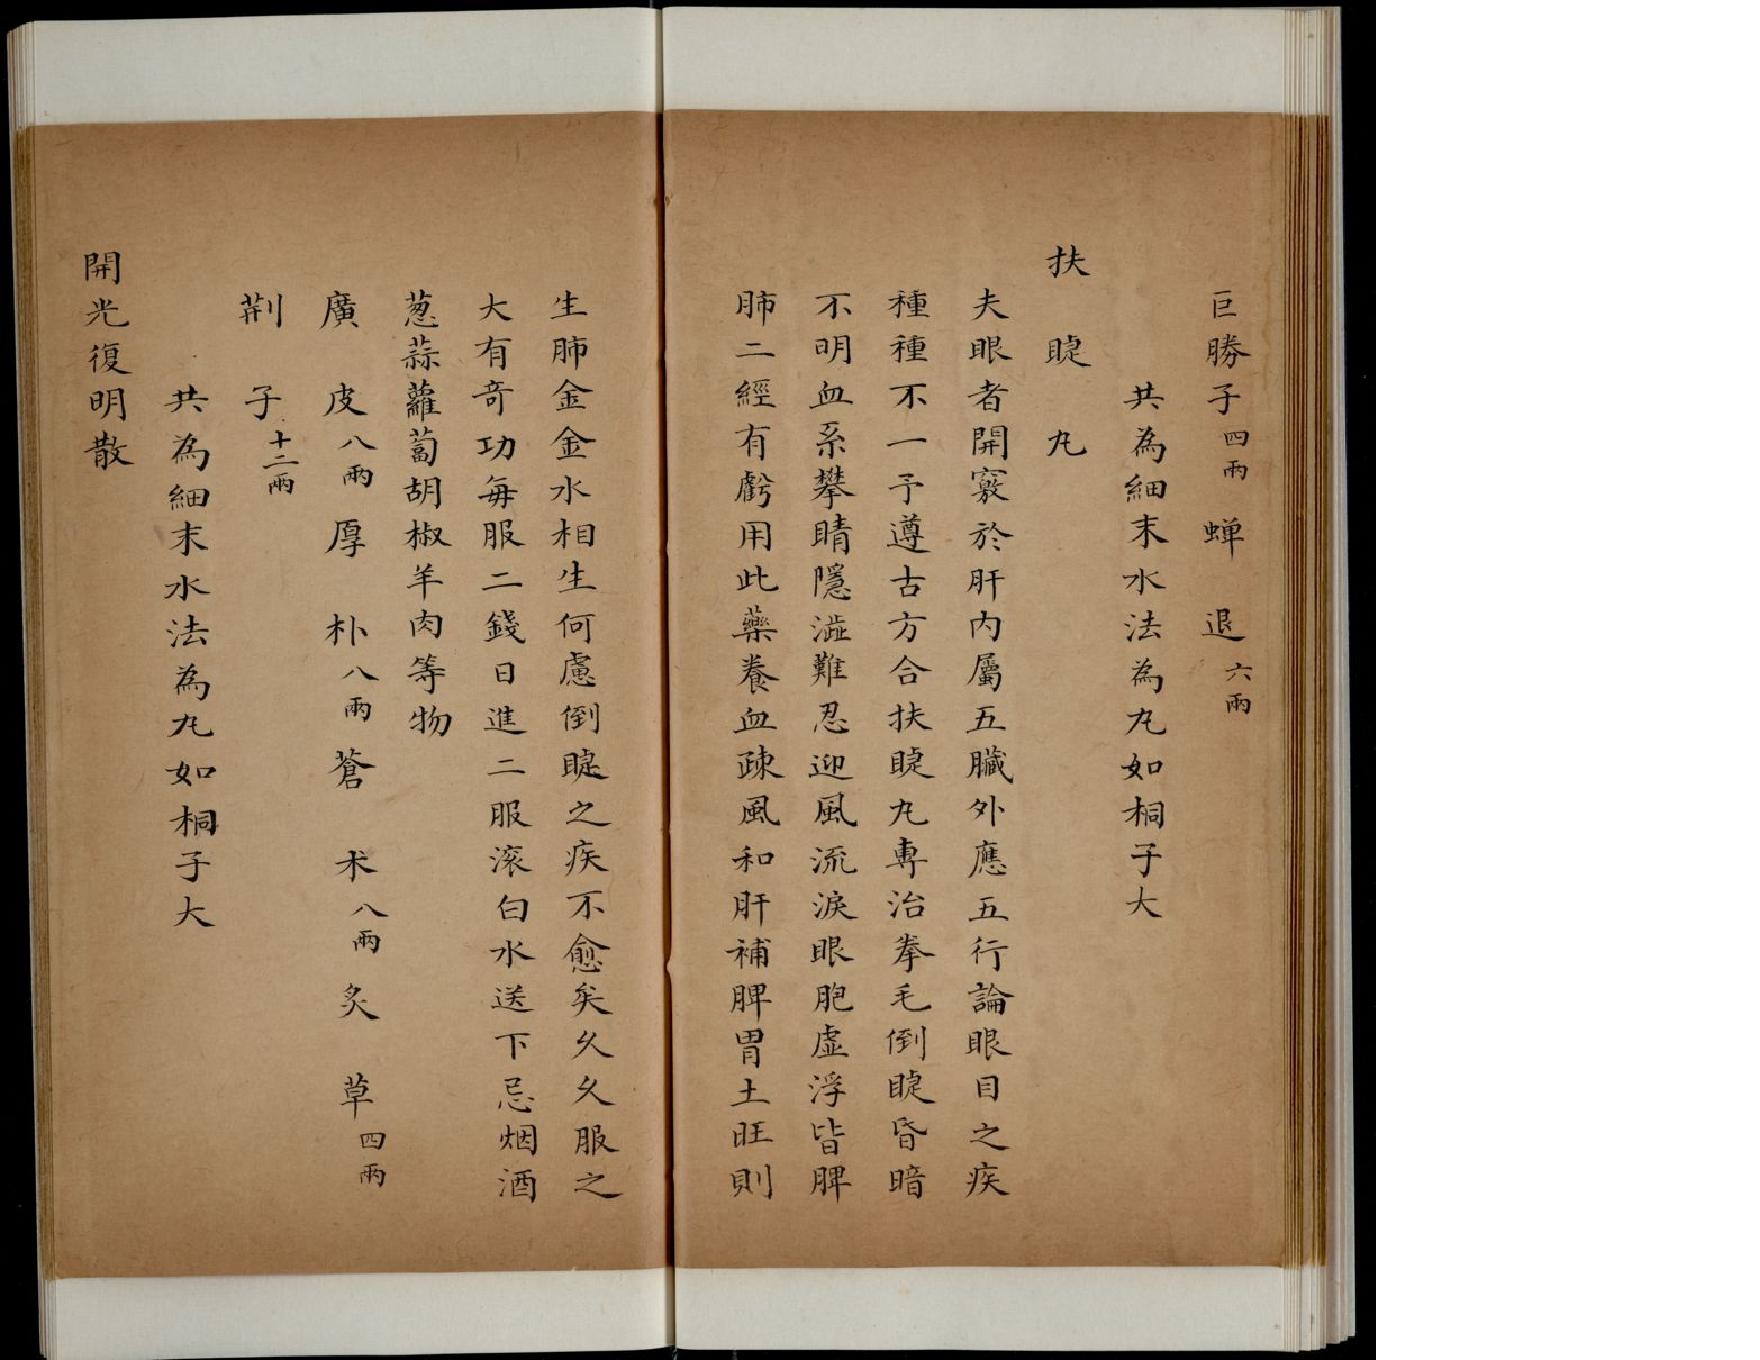 巨勝子四兩 蝉退六兩
共為細末水法為丸如桐子大
扶睫丸
夫眼者開竅於肝内屬五臟外應五行論眼目之疾
種種不一予遵古方合扶睫丸専治拳毛倒睫昏暗
不明血系攀睛隱澁難忍迎風流淚眼胞虚浮皆脾
肺二經有虧用此藥養血疎風和肝補脾胃土旺則
生肺金金水相生何慮倒睫之疾不愈矣久久服之
大有竒功毎服二錢日進二服滚白水送下忌烟酒
葱蒜蘿蔔胡椒羊肉等物
廣皮八兩 厚朴八兩 蒼术八兩 炙草四兩
荆子十二兩
共為細末水法為丸如桐子大
開光復明散